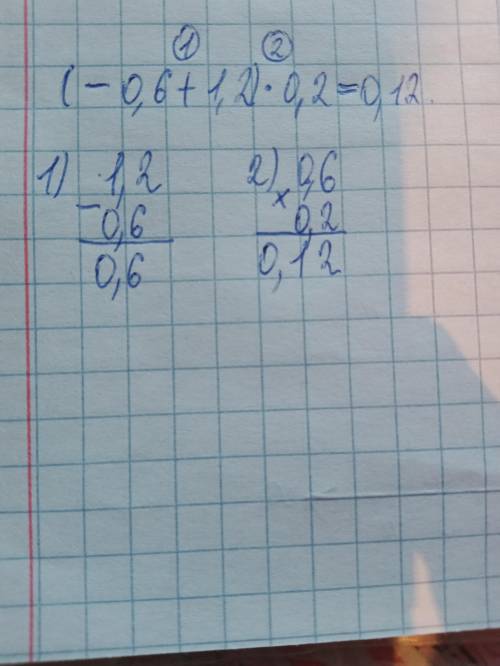 ① ②
(-0,6+1,2)·0,2=0,12.
1) 1,2 2) 0,6
- 0,6 × 0,2
0,6 0,12